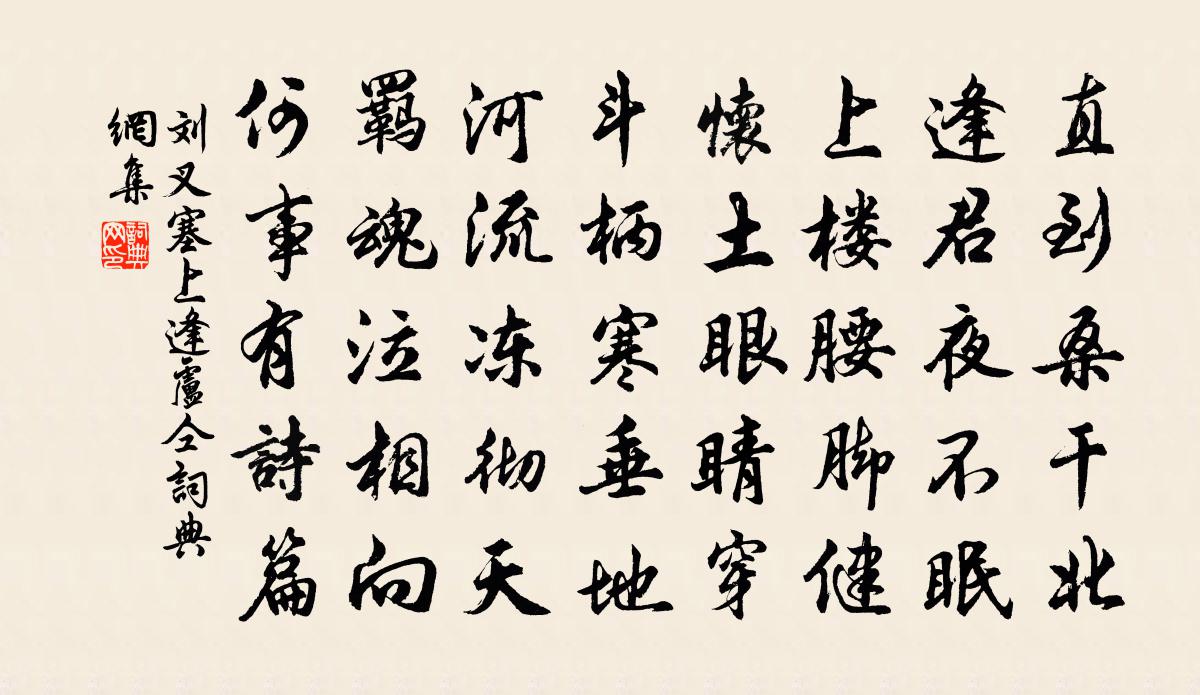 直到桑干北
逢君夜不眠
上楼腰脚健
懷土眼睛穿
斗柄寒垂地
河流冻彻天
羁魂泣相向
何事有詩篇
刘叉塞上逢盧仝詞典
網集
詞典
网印